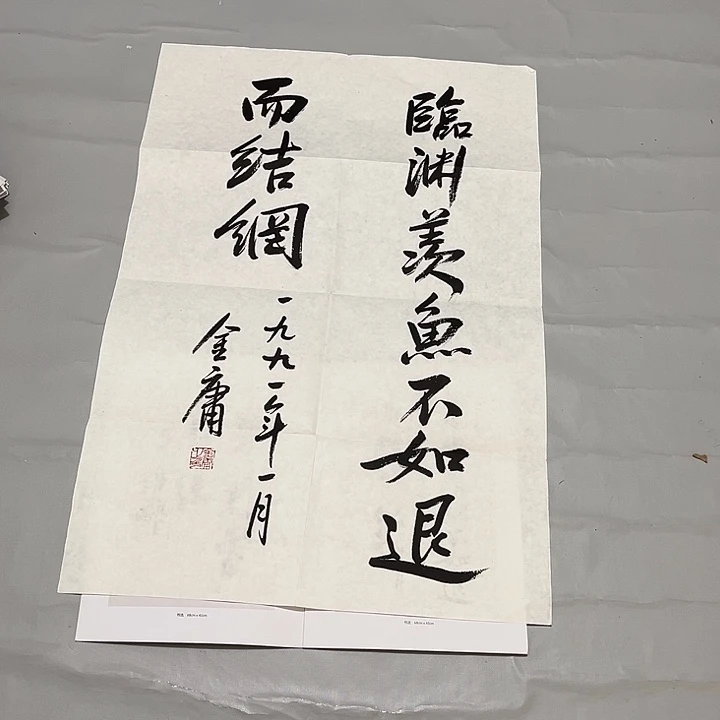 臨渊羨魚不如退
而結網
一九九一年一月
金庸